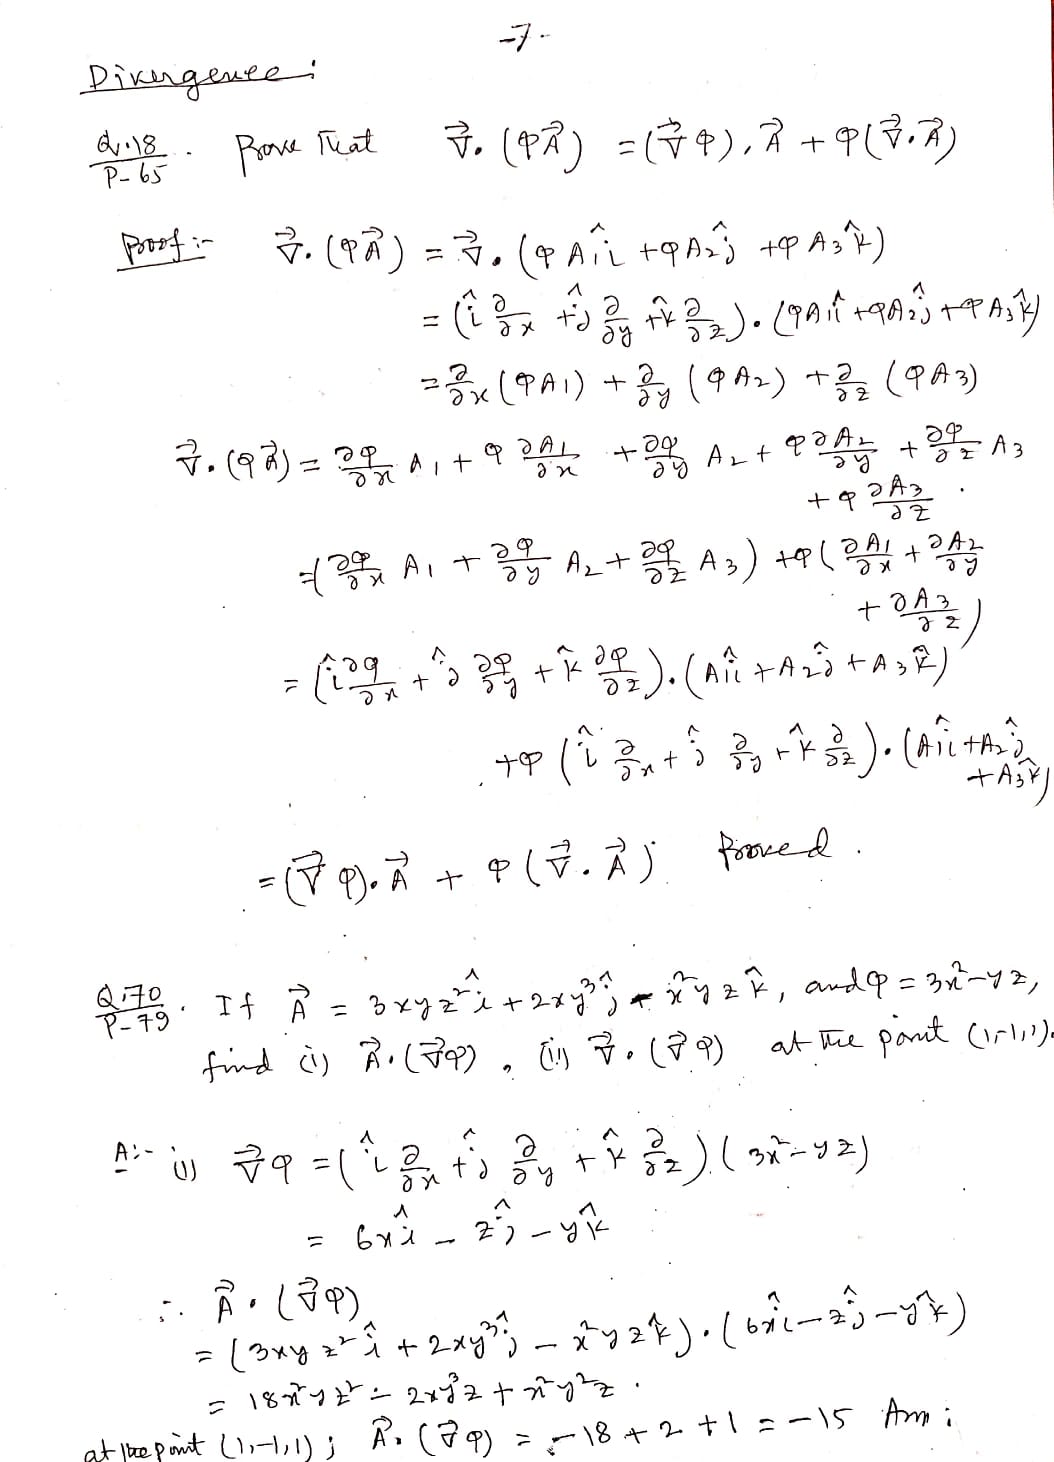 -7-
Divergence:
Q.18 / P-65. Prove That ∇⃗.(φA⃗) = (∇⃗φ).A⃗ + φ(∇⃗.A⃗)
Proof:- ∇⃗.(φA⃗) = ∇⃗.(φA₁î + φA₂ĵ + φA₃k̂)
= (î ∂/∂x + ĵ ∂/∂y + k̂ ∂/∂z).(φA₁î + φA₂ĵ + φA₃k̂)
= ∂/∂x (φA₁) + ∂/∂y (φA₂) + ∂/∂z (φA₃)
∇⃗.(φA⃗) = ∂φ/∂x A₁ + φ ∂A₁/∂x + ∂φ/∂y A₂ + φ ∂A₂/∂y + ∂φ/∂z A₃
+ φ ∂A₃/∂z.
= (∂φ/∂x A₁ + ∂φ/∂y A₂ + ∂φ/∂z A₃) + φ(∂A₁/∂x + ∂A₂/∂y
+ ∂A₃/∂z)
= (î ∂φ/∂x + ĵ ∂φ/∂y + k̂ ∂φ/∂z).(A₁î + A₂ĵ + A₃k̂)
+ φ(î ∂/∂x + ĵ ∂/∂y + k̂ ∂/∂z).(A₁î + A₂ĵ
+ A₃k̂)
= (∇⃗φ).A⃗ + φ(∇⃗.A⃗) Proved.
Q.70 / P-79. If A⃗ = 3xyz²î + 2xy³ĵ - x²yzk̂, and φ = 3x²-yz,
find (i) A⃗.(∇⃗φ), (ii) ∇⃗.(∇⃗φ) at the point (1,-1,1).
A:- (i) ∇⃗φ = (î ∂/∂x + ĵ ∂/∂y + k̂ ∂/∂z).(3x²-yz)
= 6xî - zĵ - yk̂
∴ A⃗.(∇⃗φ)
= (3xyz²î + 2xy³ĵ - x²yzk̂).(6xî - zĵ - yk̂)
= 18x²yz² - 2xy³z + x²y²z.
at the point (1,-1,1); A⃗.(∇⃗φ) = -18+2+1 = -15 Ans: